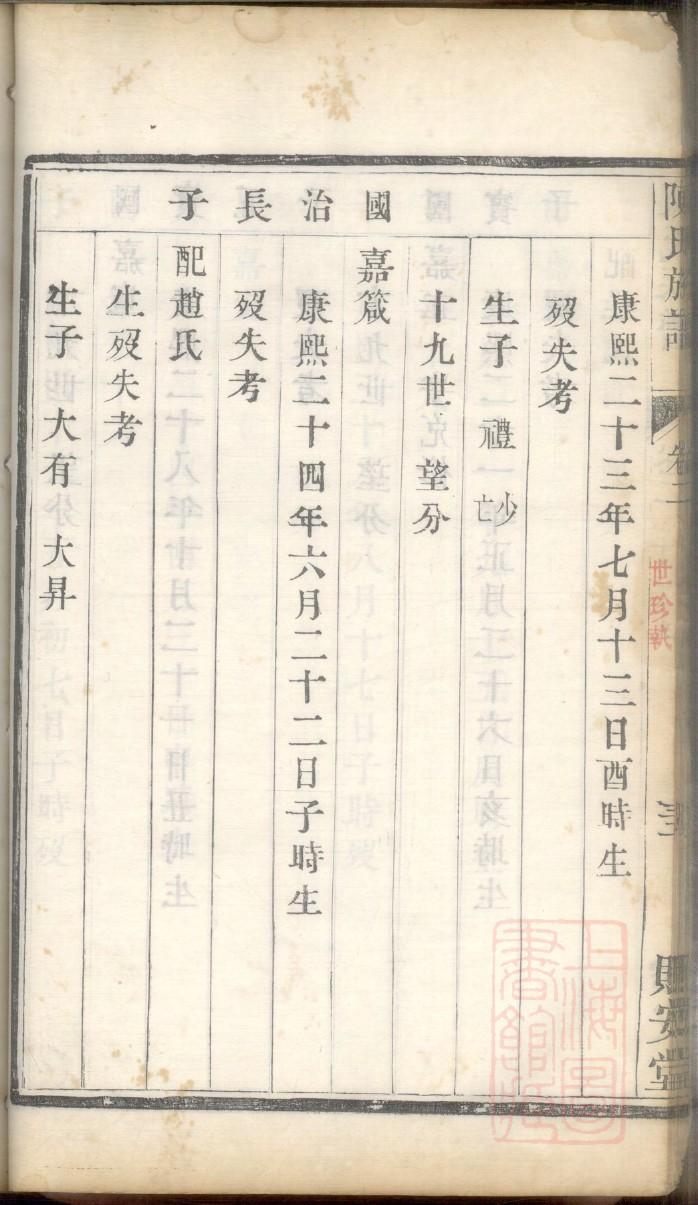 陳氏族譜
卷二
世珍執
貽安堂
上海圖書館藏
康熙二十三年七月十三日酉時生
歿失考
生子 禮 少亡
十九世望分
國治長子
嘉箴
康熙二十四年六月二十二日子時生
歿失考
配趙氏
生歿失考
生子大有大昇